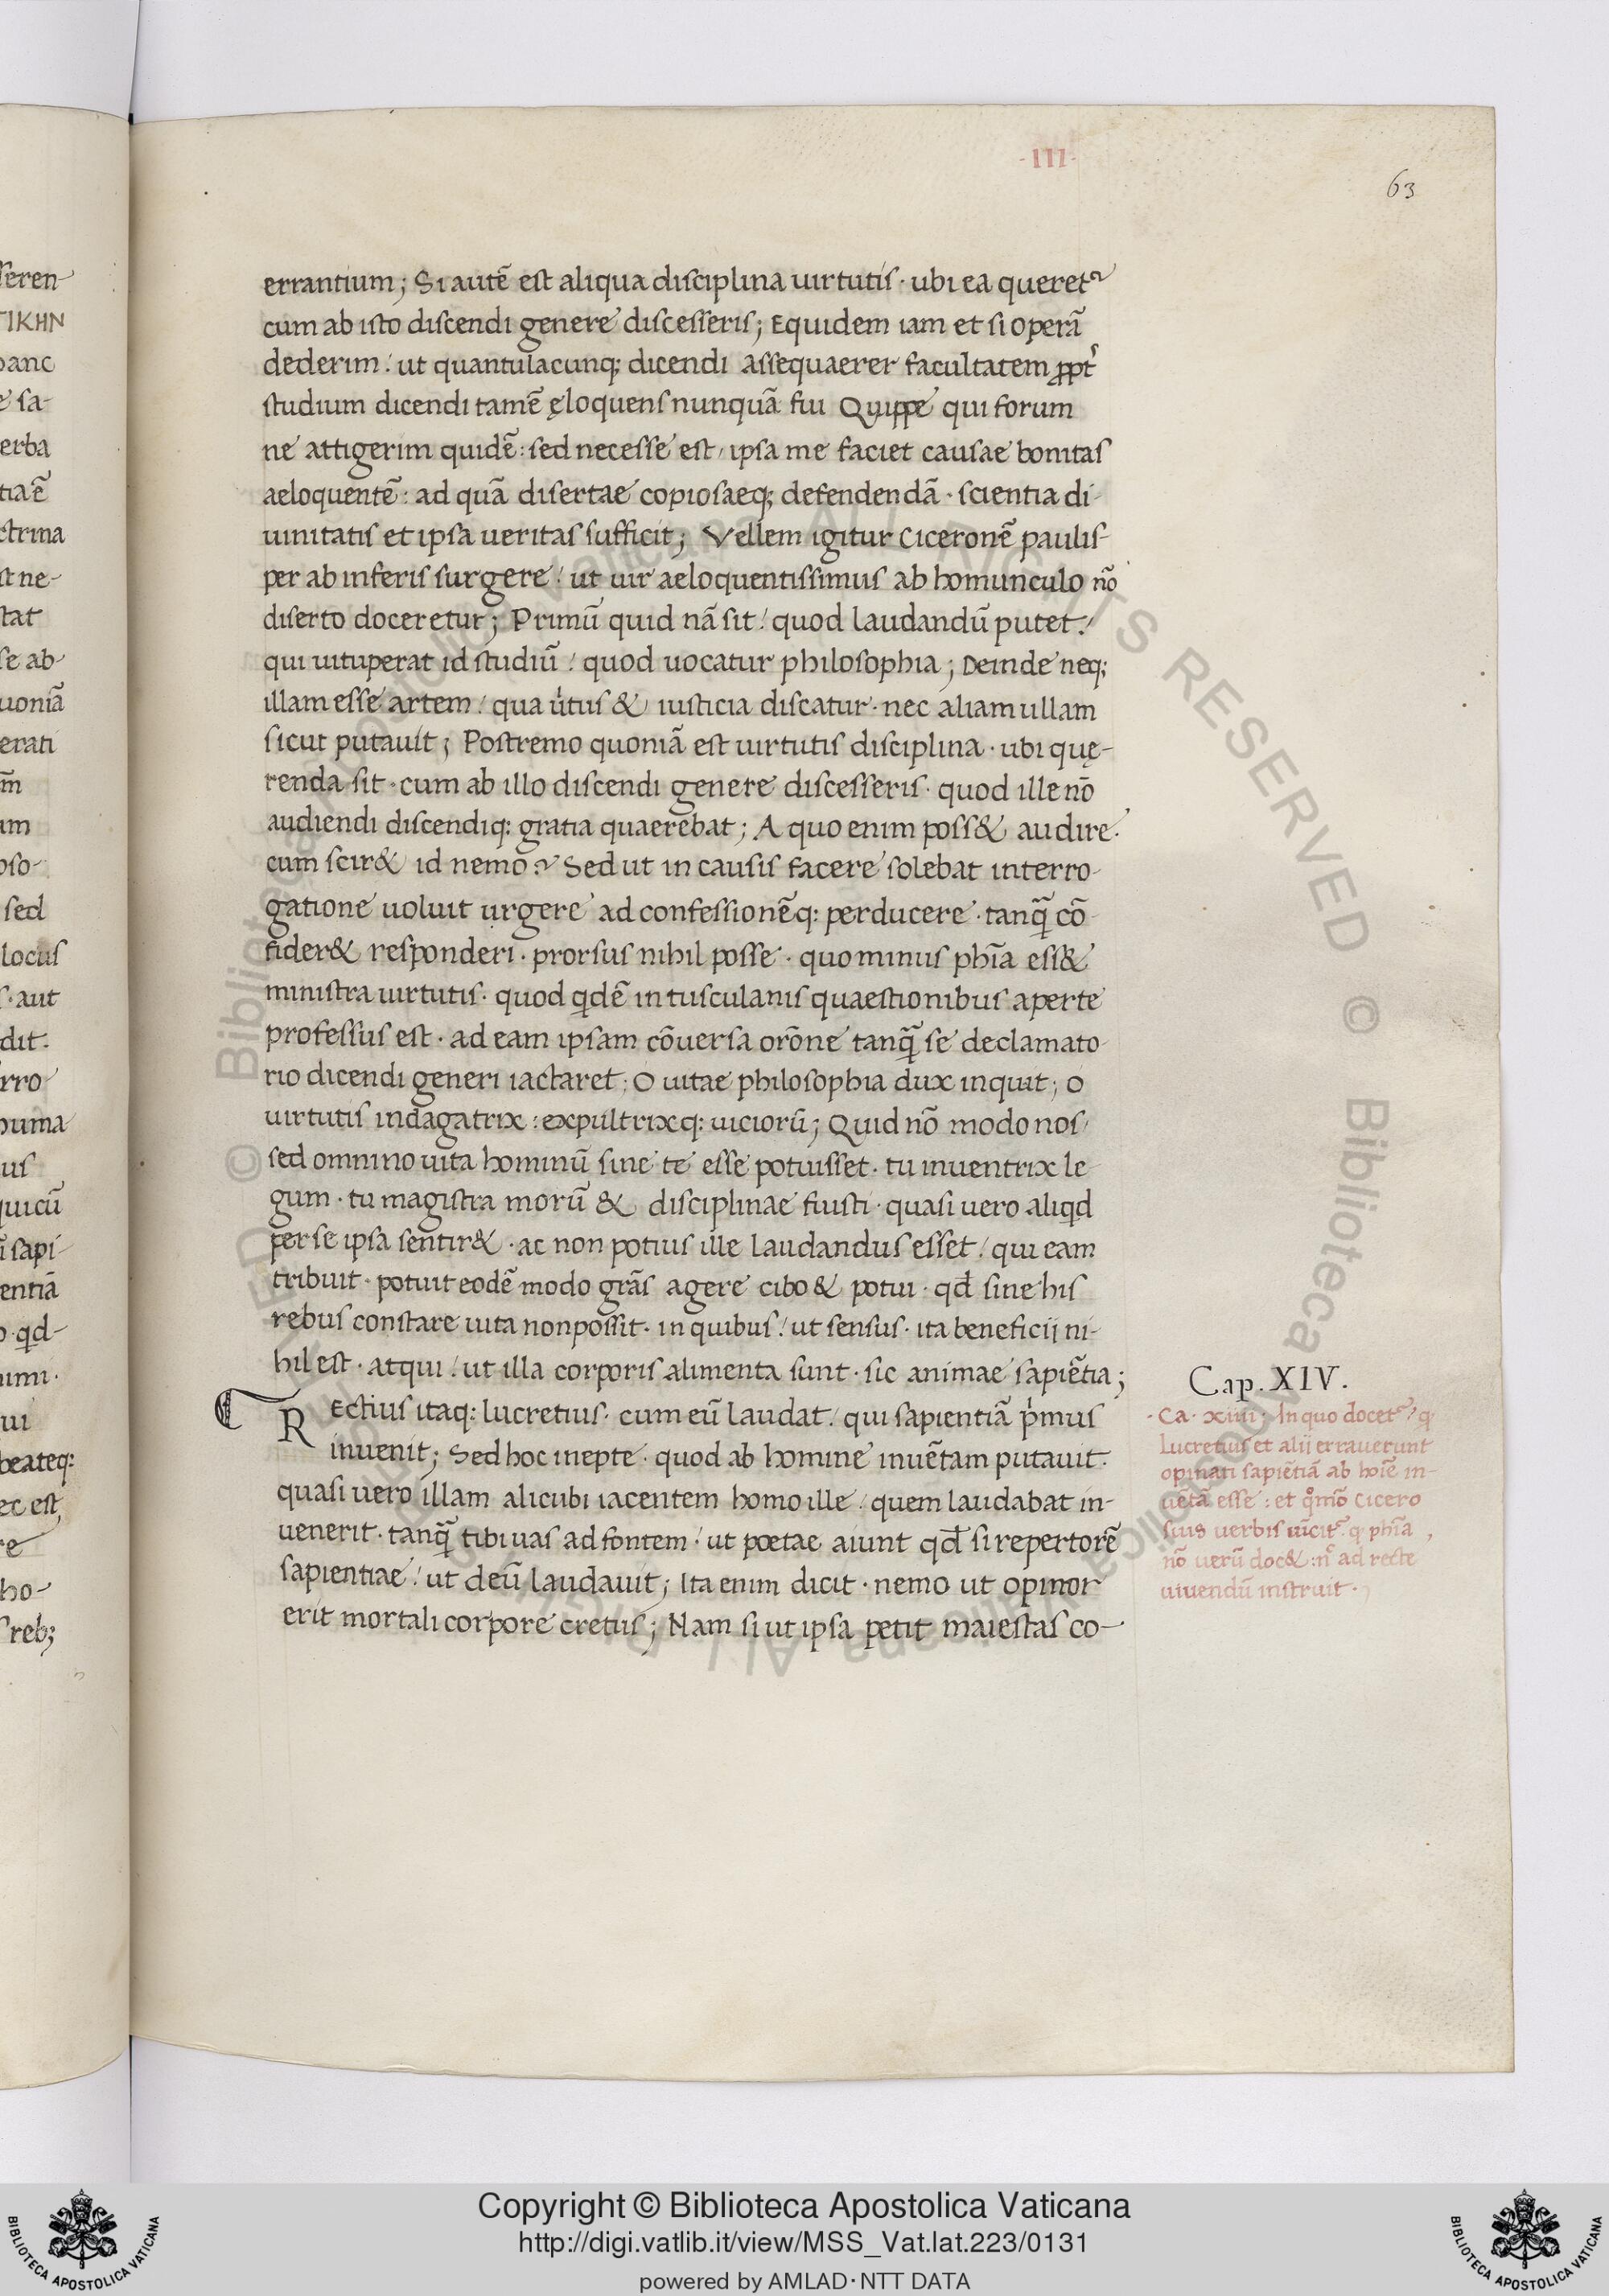 ·III·
63
errantium; Si autē est aliqua disciplina uirtutis · ubi ea queret᷑
cum ab isto discendi genere discesseris; Equidem iam et si operā
dederim / ut quantulacunq; dicendi assequaerer facultatem ꝓpt᷑
studium dicendi tamē ęloquens nunquā fui Quippe qui forum
ne attigerim quidē : sed necesse est / ipsa me faciet causae bonitas
aeloquentē : ad quā disertae copiosaeq; defendendā · scientia di-
uinitatis et ipsa ueritas sufficit; Vellem igitur Ciceronē paulis-
per ab inferis surgere / ut uir aeloquentissimus ab homunculo nō
diserto doceretur; Primū quid nā sit / quod laudandū putet /
qui uituperat id studiū / quod uocatur philosophia; Deinde neq;
illam esse artem / qua u̍tus & iusticia discatur · nec aliam ullam
sicut putauit; Postremo quoniā est uirtutis disciplina · ubi quę-
renda sit · cum ab illo discendi genere discesseris · quod ille nō
audiendi discendiq: gratia quaerebat; A quo enim poss& audire ·
cum scir& id nemo? Sed ut in causis facere solebat interro-
gatione uoluit urgere ad confessionēq: perducere · tanq̄ cō
fider& responderi · prorsus nihil posse · quominus phīa ess&
ministra uirtutis · quod qdē in tusculanis quaestionibus aperte
professus est · ad eam ipsam cōuersa orōne tanq̄ se declamato
rio dicendi generi iactaret; O uitae philosophia dux inquit; o
uirtutis indagatrix : expultrixq: uiciorū; Quid nō modo nos /
sed omnino uita hominū sine te esse potuisset · tu inuentrix le
gum · tu magistra morū & disciplinae fuisti · quasi uero aliqd
per se ipsa sentir& · ac non potius ille laudandus esset / qui eam
tribuit · potuit eodē modo grās agere cibo & potui · qđ sine his
rebus constare uita non possit · in quibus / ut sensus · ita beneficij ni-
hil est · atqui / ut illa corporis alimenta sunt · sic animae sapiētia;
REctius itaq: lucretius · cum eū laudat / qui sapientiā p̍mus
inuenit; Sed hoc inepte · quod ab homine inuētam putauit ·
quasi uero illam alicubi iacentem homo ille / quem laudabat in-
uenerit · tanq̄ tibi uas ad fontem / ut poetae aiunt qđ si repertorē
sapientiae / ut deū laudauit; Ita enim dicit · nemo ut opinor
erit mortali corpore cretus; Nam si ut ipsa petit maiestas co-
Cap. XIV.
·Ca· xiiii; In quo docet᷑ / q
Lucretius et alij errauerunt
opinati sapiētiā ab hoīe in-
uētā esse : et qͦmō Cicero
suis uerbis uīcit᷑ q phīa
nō uerū doc& : nͨ ad recte
uiuendū instruit ·
seren-
TIKHN
banc
e sa-
erba
tia ē
ctrina
st ne-
stat
se ab-
uoniā
erati
um
oso-
sed
locus
aut
dit.
rro
buma
us
quicū
sapi-
entiā
qd-
umi ·
ui
beateq:
ec est
re
ho-
reb;
© Biblioteca Apostolica Vaticana ALL RIGHTS RESERVED
Copyright © Biblioteca Apostolica Vaticana
http://digi.vatlib.it/view/MSS_Vat.lat.223/0131
powered by AMLAD·NTT DATA
BIBLIOTECA APOSTOLICA VATICANA
BIBLIOTECA APOSTOLICA VATICANA